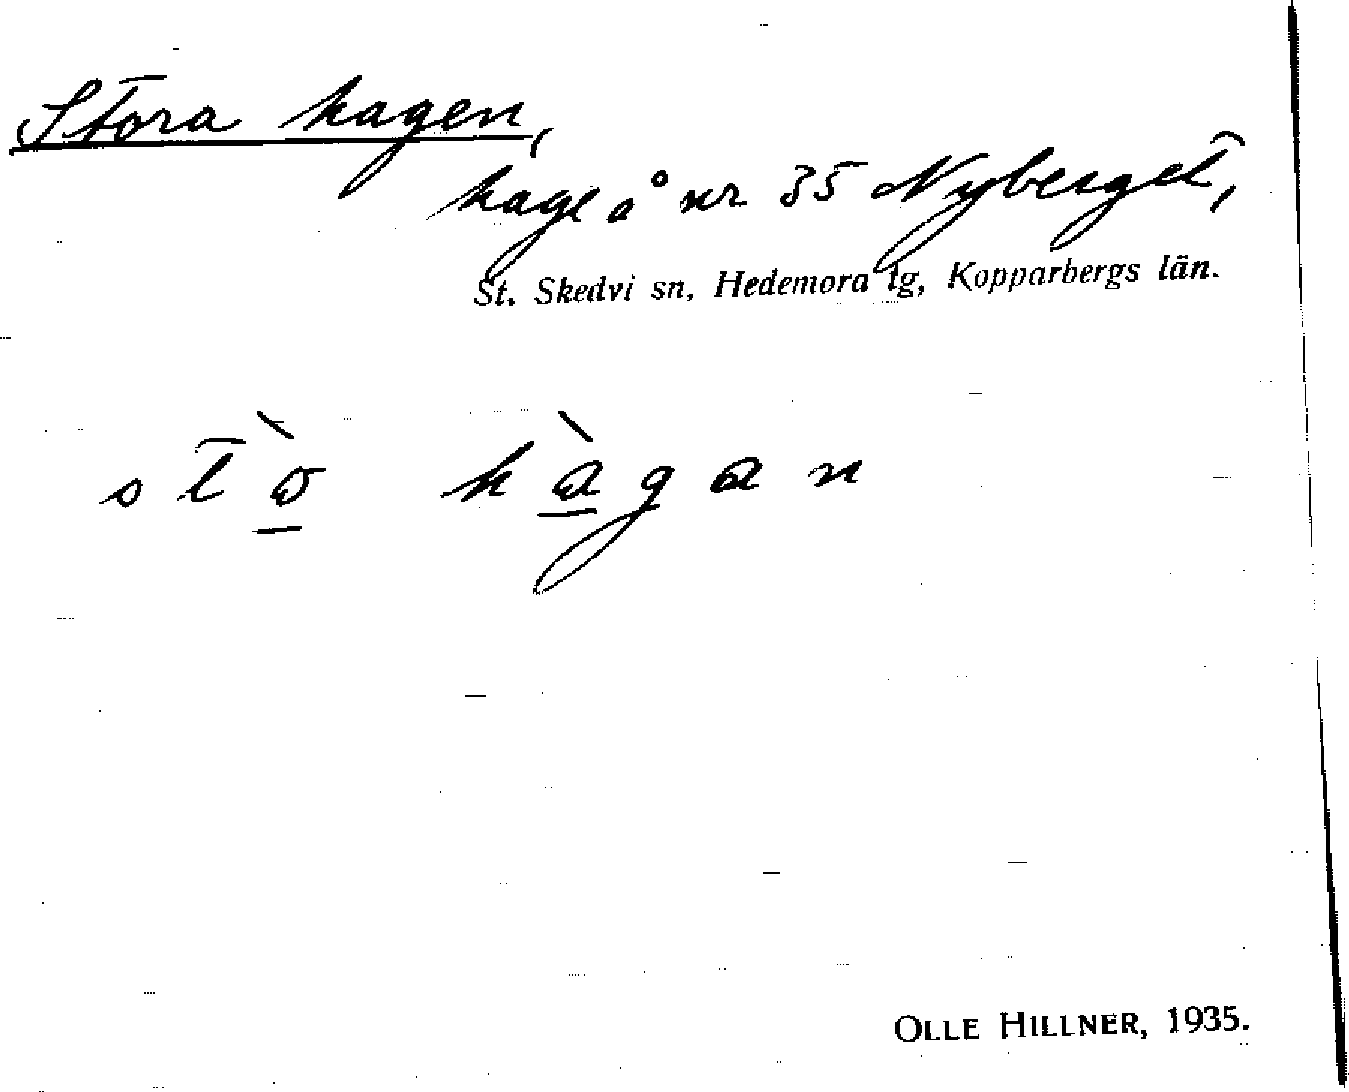 Stora hagen,
hage å nr 35 Nyberget,
St. Skedvi sn, Hedemora tg, Kopparbergs län.
stò hàgan
OLLE HILLNER, 1935.